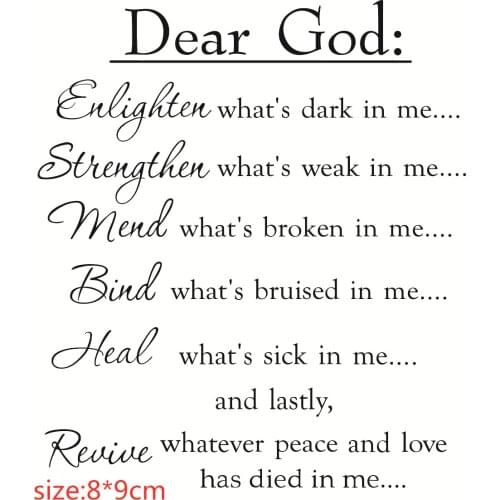 Dear God:
Enlighten what's dark in me....
Strengthen what's weak in me....
Mend what's broken in me....
Bind what's bruised in me....
Heal what's sick in me....
and lastly,
Revive whatever peace and love
has died in me....
size:8*9cm